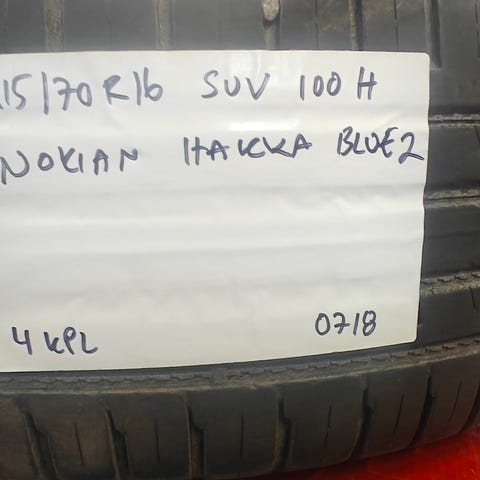 15/70 R16 SUV 100 H
NOKIAN HAKKA BLUE2
4 KPL 0718